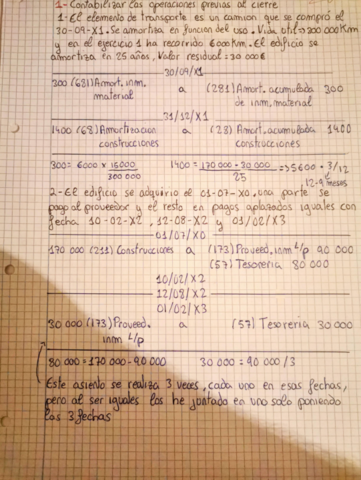 1- Contabilizar las operaciones previas al cierre
1- El elemento de transporte es un camion que se compró el
30-09-X1. Se amortiza en función del uso. Vida útil => 300 000 Km
y en el ejercicio 1 ha recorrido 6000 Km. El edificio se
amortiza en 25 años. Valor residual: 30 000 €
30/09/X1
300 (681) Amort. inm. material a (281) Amort. acumulada de inm. material 300
31/12/X1
1400 (68) Amortizacion construcciones a (28) Amort. acumulada construcciones 1400
300 = 6000 x 15000 / 300 000 1400 = 170 000 - 30 000 / 25 => 5600 · 3/12
12-9 meses
2- El edificio se adquirio el 01-07-X0, una parte se
pago al proveedor y el resto en pagos aplazados iguales con
fecha 10-02-X2, 12-08-X2 y 01/02/X3
01/07/X0
170 000 (211) Construcciones a (173) Proveed. inm L/p 90 000
(57) Tesoreria 80 000
10/02/X2
12/08/X2
01/02/X3
30 000 (173) Proveed. inm L/p a (57) Tesoreria 30 000
80 000 = 170 000 - 90 000 30 000 = 90 000 / 3
Este asiento se realiza 3 veces, cada uno en esas fechas,
pero al ser iguales los he juntado en uno solo poniendo
las 3 fechas